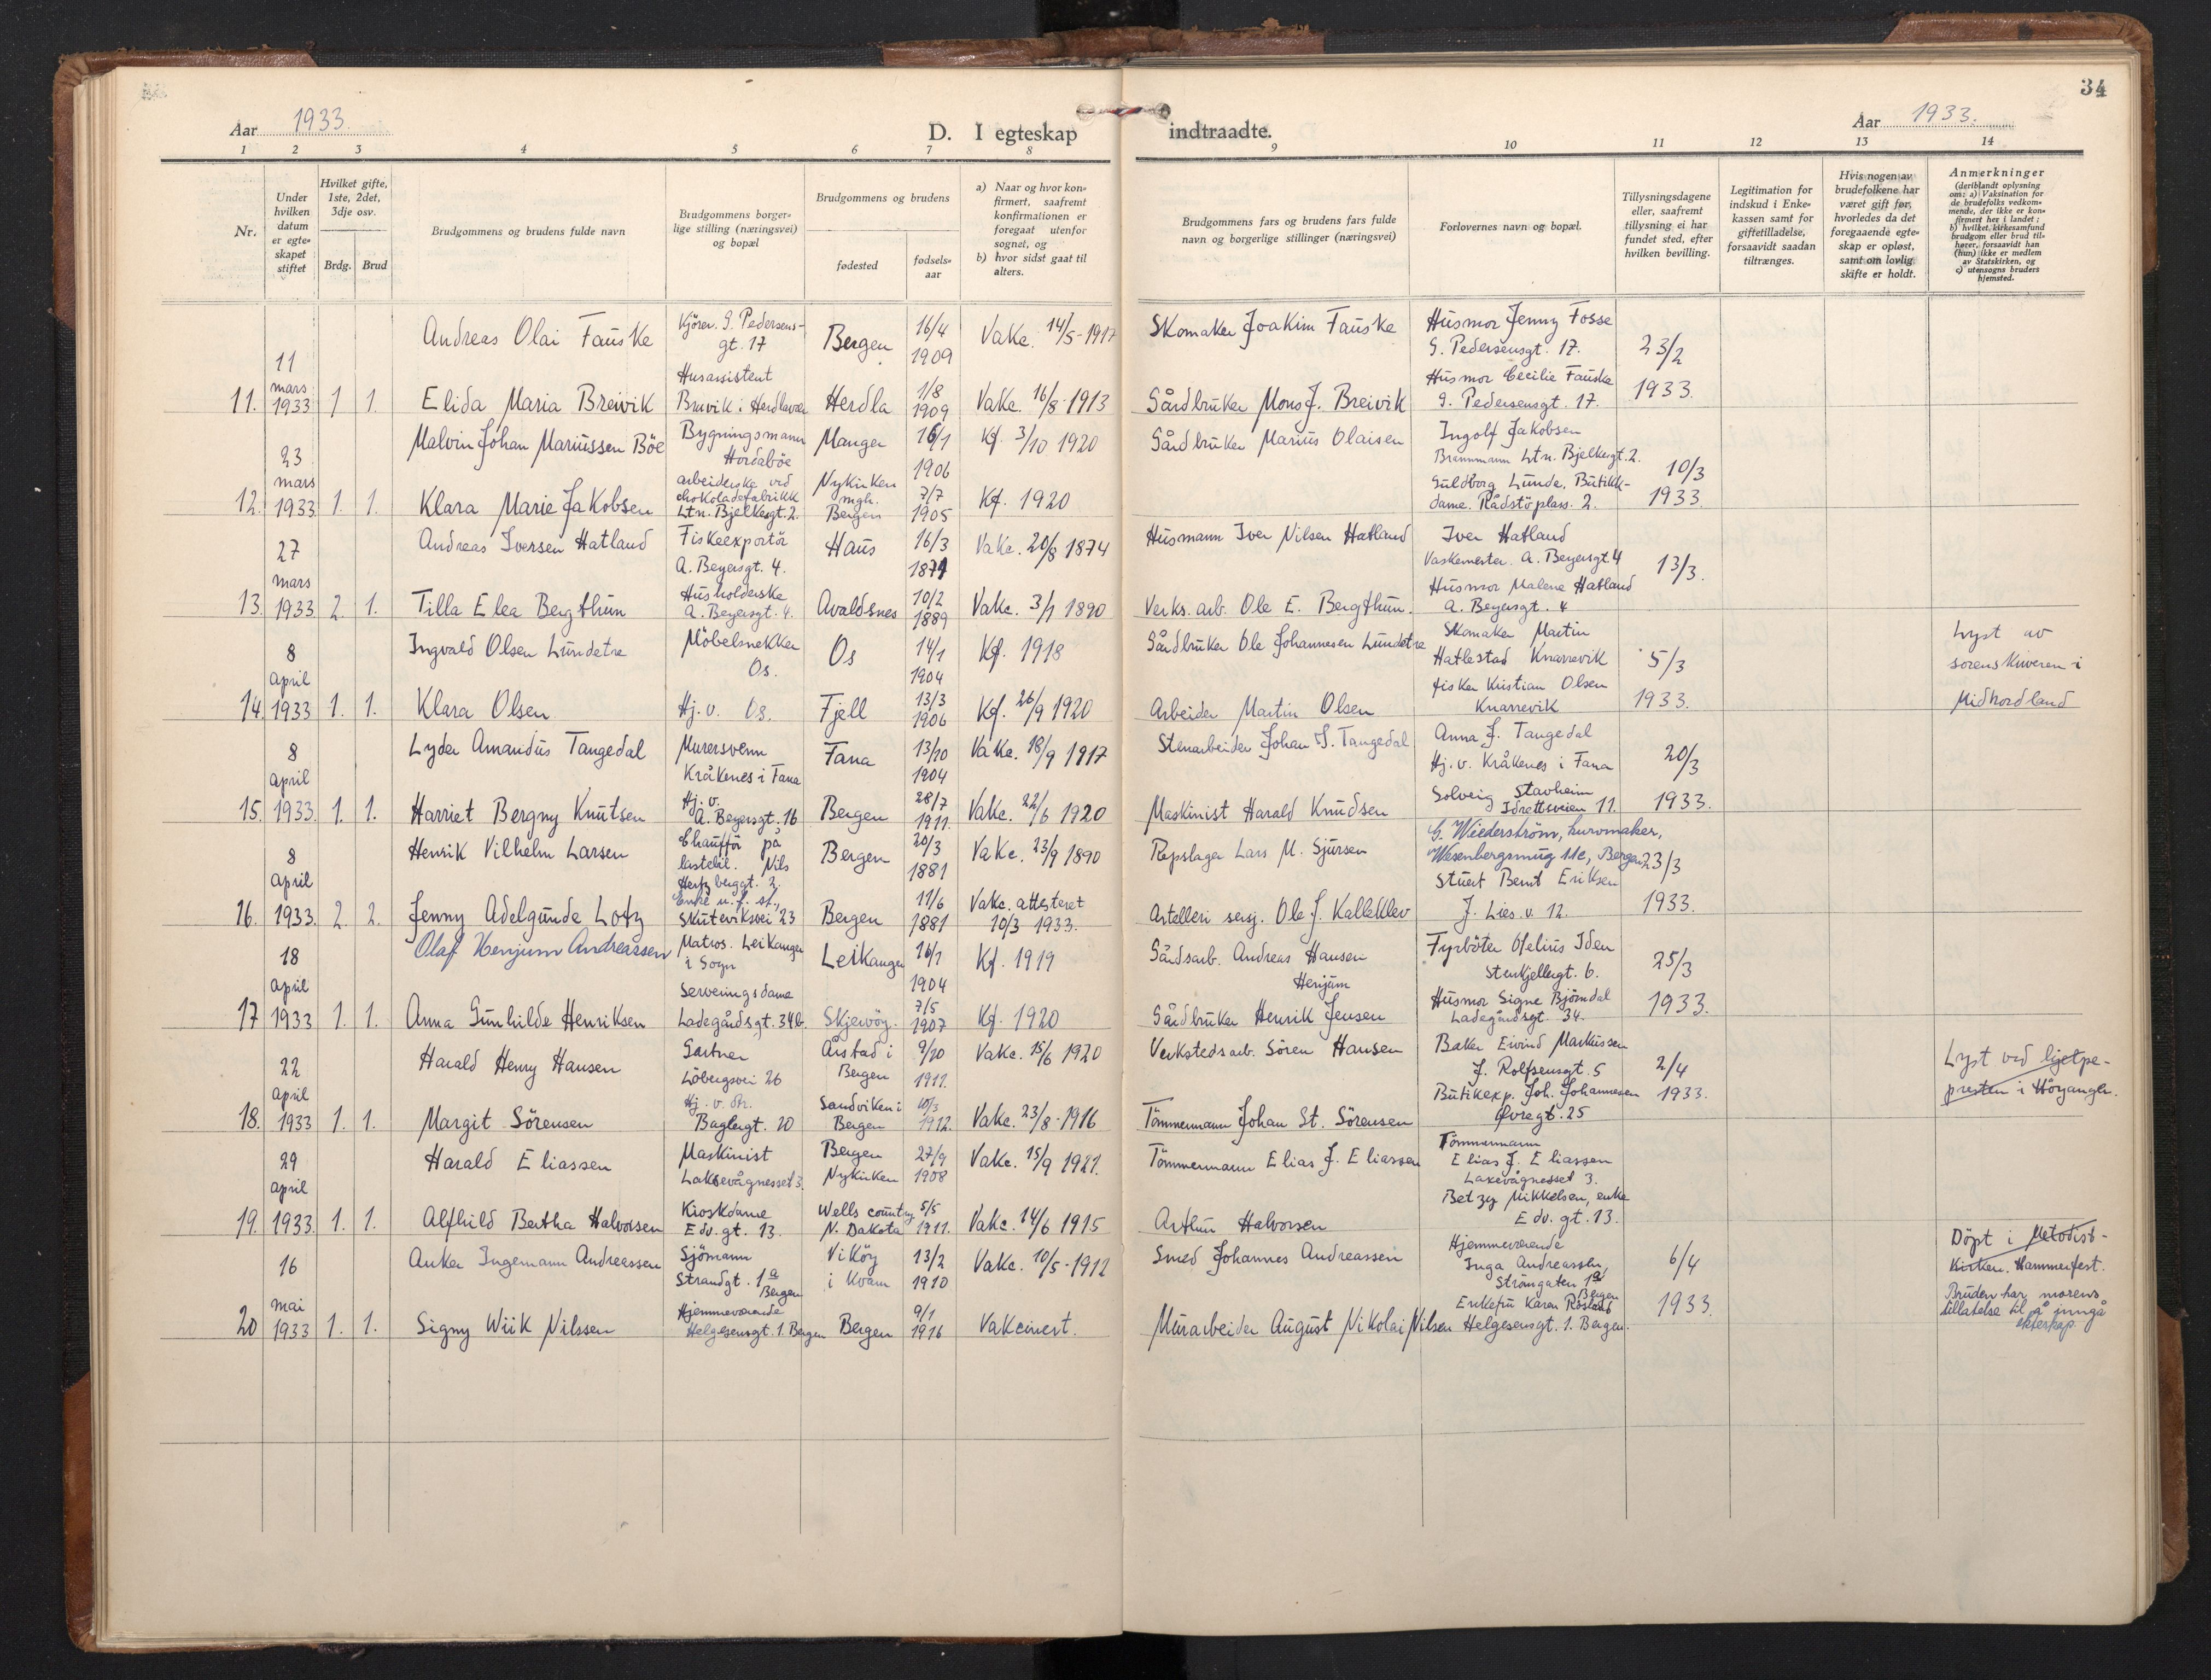 34
Aar 1933.
D. I egteskap indtraadte.
Aar 1933.
1 2 3 4 5 6 7 8 9 10 11 12 13 14
Nr.
Under hvilken datum er egteskapet stiftet
Hvilket gifte, 1ste, 2det, 3dje osv.
Brdg. Brud
Brudgommens og brudens fulde navn
Brudgommens borgerlige stilling (næringsvei) og bopæl
Brudgommens og brudens
fødested
fødselsaar
a) Naar og hvor konfirmert, saafremt konfirmationen er foregaat utenfor sognet, og
b) hvor sidst gaat til alters.
Brudgommens fars og brudens fars fulde navn og borgerlige stillinger (næringsvei)
Forlovernes navn og bopæl.
Tillysningsdagene eller, saafremt tillysning ei har fundet sted, efter hvilken bevilling.
Legitimation for indskud i Enkekassen samt for giftetilladelse, forsaavidt saadan tiltrænges.
Hvis nogen av brudefolkene har været gift før, hvorledes da det foregaaende egteskap er opløst, samt om lovlig skifte er holdt.
Anmerkninger
(deriblandt oplysning om: a) Vaksination for de brudefolks vedkommende, der ikke er konfirmert her i landet; b) hvilket kirkesamfund brudgom eller brud tilhører, forsaavidt han (hun) ikke er medlem av Statskirken, og c) utensogns bruders hjemsted.
11. 11 mars 1933 1 1.
Andreas Olai Fauske
Kjörer. G. Pedersens-
gt. 17
Bergen
16/4
1909
Vakc. 14/5-1917
Skomaker Joakim Fauske
Husmor Jenny Fosse
G. Pedersensgt. 17.
23/2
1933.
Elida Maria Breivik
Husassistent
Breivik i Herdlavær
Herdla
1/8
1909
Vakc. 16/8-1913
Gårdbruker Mons J. Breivik
Husmor Cecilie Fauske
G. Pedersensgt. 17.
12. 23 mars 1933 1. 1.
Malvin Johan Mariussen Böe
Bygningsmann
Hordaböe
Manger
16/1
1906
Kf. 3/10 1920
Gårdbruker Marius Olaisen
Ingolf Jakobsen
Brannmann Ltn. Bjelkesgt. 2.
10/3
1933.
Klara Marie Jakobsen
arbeiderske ved
chokoladefabrikk
Ltn. Bjelkesgt. 2.
Nykirken
mgh.
Bergen
7/7
1905
Kf. 1920
Guldborg Lunde, Butikk-
dame. Rådstöplass. 2.
13. 27 mars 1933 2. 1.
Andreas Iversen Hatland
Fiskeexportör
A. Beyersgt. 4.
Haus
16/3
1871
Vakc. 20/8 1874
Husmann Iver Nilsen Hatland
Iver Hatland
Vaskemester. A. Beyersgt. 4
13/3.
Tilla Elea Bergthun
Husholderske
A. Beyersgt. 4.
Avaldsnes
10/2
1889
Vakc. 3/7 1890
Verks. arb. Ole E. Bergthun.
Husmor Malene Hatland
A. Beyersgt. 4
14. 8 april 1933 1. 1.
Ingvald Olsen Lundetre
Möbelsnekker
Os.
Os
14/1
1904
Kf. 1918
Gårdbruker Ole Johannesen Lundetre
Skomaker Martin
Hatlestad Knarrevik
5/3
1933.
Lyst av
sorenskriveren i
Midhordland
Klara Olsen
Hj. v. Os.
Fjell
13/3
1906
Kf. 26/9 1920
Arbeider Martin Olsen
fisker Kristian Olsen
Knarrevik
15. 8 april 1933. 1. 1.
Lyder Amandus Tangedal
Murersvenn
Kråkenes i Fana
Fana
13/10
1904
Vakc. 18/9 1917
Stenarbeider Johan S. Tangedal
Anna J. Tangedal
Hj. v. Kråkenes i Fana
20/3
1933.
Harriet Bergny Knutsen
Hj. v.
A. Beyersgt. 16
Bergen
28/7
1911.
Vakc. 22/6 1920
Maskinist Harald Knudsen
Solveig Stavheim
Idrettsveien 11.
16. 8 april 1933. 2. 2.
Henrik Vilhelm Larsen
Chaufför på
lastebil. Nils
Hertzberggt. 2.
Bergen
20/3
1881
Vakc. 23/9 1890
Repslager Lars M. Sjursen
G. Wiederström, kurvmaker,
Wesenbergsmug 11c, Bergen
23/3
1933.
Jenny Adelgunde Lotz
Enke u. f. st.,
Skuteviksvei 23
Bergen
11/6
1881
Vakc. attesteret
10/3 1933.
Artelleri serg. Ole J. Kalleklev
Stuert Bernt Eriksen
J. Lies. v. 12.
17 18 april 1933 1. 1.
Olaf Henjum Andreassen
Matros. Leikanger
i Sogn
Leikanger
16/1
1904
Kf. 1919
Gårdsarb. Andreas Hansen
Henjum
Fyrböter Ofelius Iden
Stenkjellergt. 6.
25/3
1933.
Anna Gunhilde Henriksen
Serveringsdame
Ladegårdsgt. 34b.
Skjervöy.
7/5
1907
Kf. 1920
Gårdbruker Henrik Jensen
Husmor Signe Björndal
Ladegårdsgt 34.
18. 22 april 1933 1. 1.
Harald Henry Hansen
Gartner
Löbergsvei 26
Årstad i
Bergen
9/10
1911.
Vakc. 15/6 1920
Verkstedsarb. Sören Hansen
Baker Eivind Markussen
J. Rolfsensgt. 5
2/4
1933.
Lyst ved hjelpe-
presten i Höyanger.
Margit Sörensen
Hj. v. dr.
Baglergt. 20
Sandviken i
Bergen
10/3
1912.
Vakc. 23/8-1916
Tömmermann Johan St. Sörensen
Butikexp. Joh. Johannesen
Övregt. 25
19. 29 april 1933. 1. 1.
Harald Eliassen
Maskinist
Laksevågnesset 3.
Bergen
Nykirken
27/9
1908
Vakc. 15/9 1921.
Tömmermann Elias J. Eliassen
Tömmermann
Elias J. Eliassen
Laxevågnesset 3.
Alfhild Bertha Halvorsen
Kioskdame
Edv. gt. 13.
Wells country
N. Dakota
5/5
1911.
Vakc. 14/6 1915
Arthur Halvorsen
Betzy Mikkelsen, enke
Edv. gt. 13.
20 16 mai 1933 1. 1.
Anker Ingemann Andreassen
Sjömann
Strandgt. 1a
Bergen
Viköy
i Kvam
13/2
1910
Vakc. 10/5-1912
Smed Johannes Andreassen
Hjemmeværende
Inga Andreassen,
Strömgaten 1a
Bergen
6/4
1933.
Döpt i Metodist-
Kirken. Hammerfest.
Bruden har morens
tillatelse til å inngå
ekteskap.
Signy Wiik Nilssen
Hjemmeværende
Helgesensgt. 1. Bergen
Bergen
9/1
1916
Vakcinert.
Murarbeider August Nikolai Nilsen
Enkefru Karen
Helgesensgt. 1. Bergen.